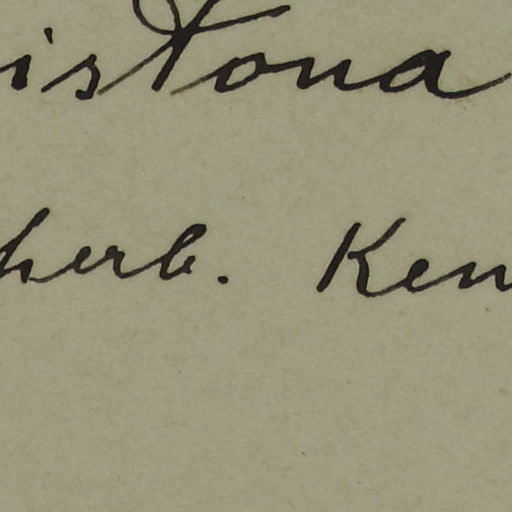 istona
herb. Ken